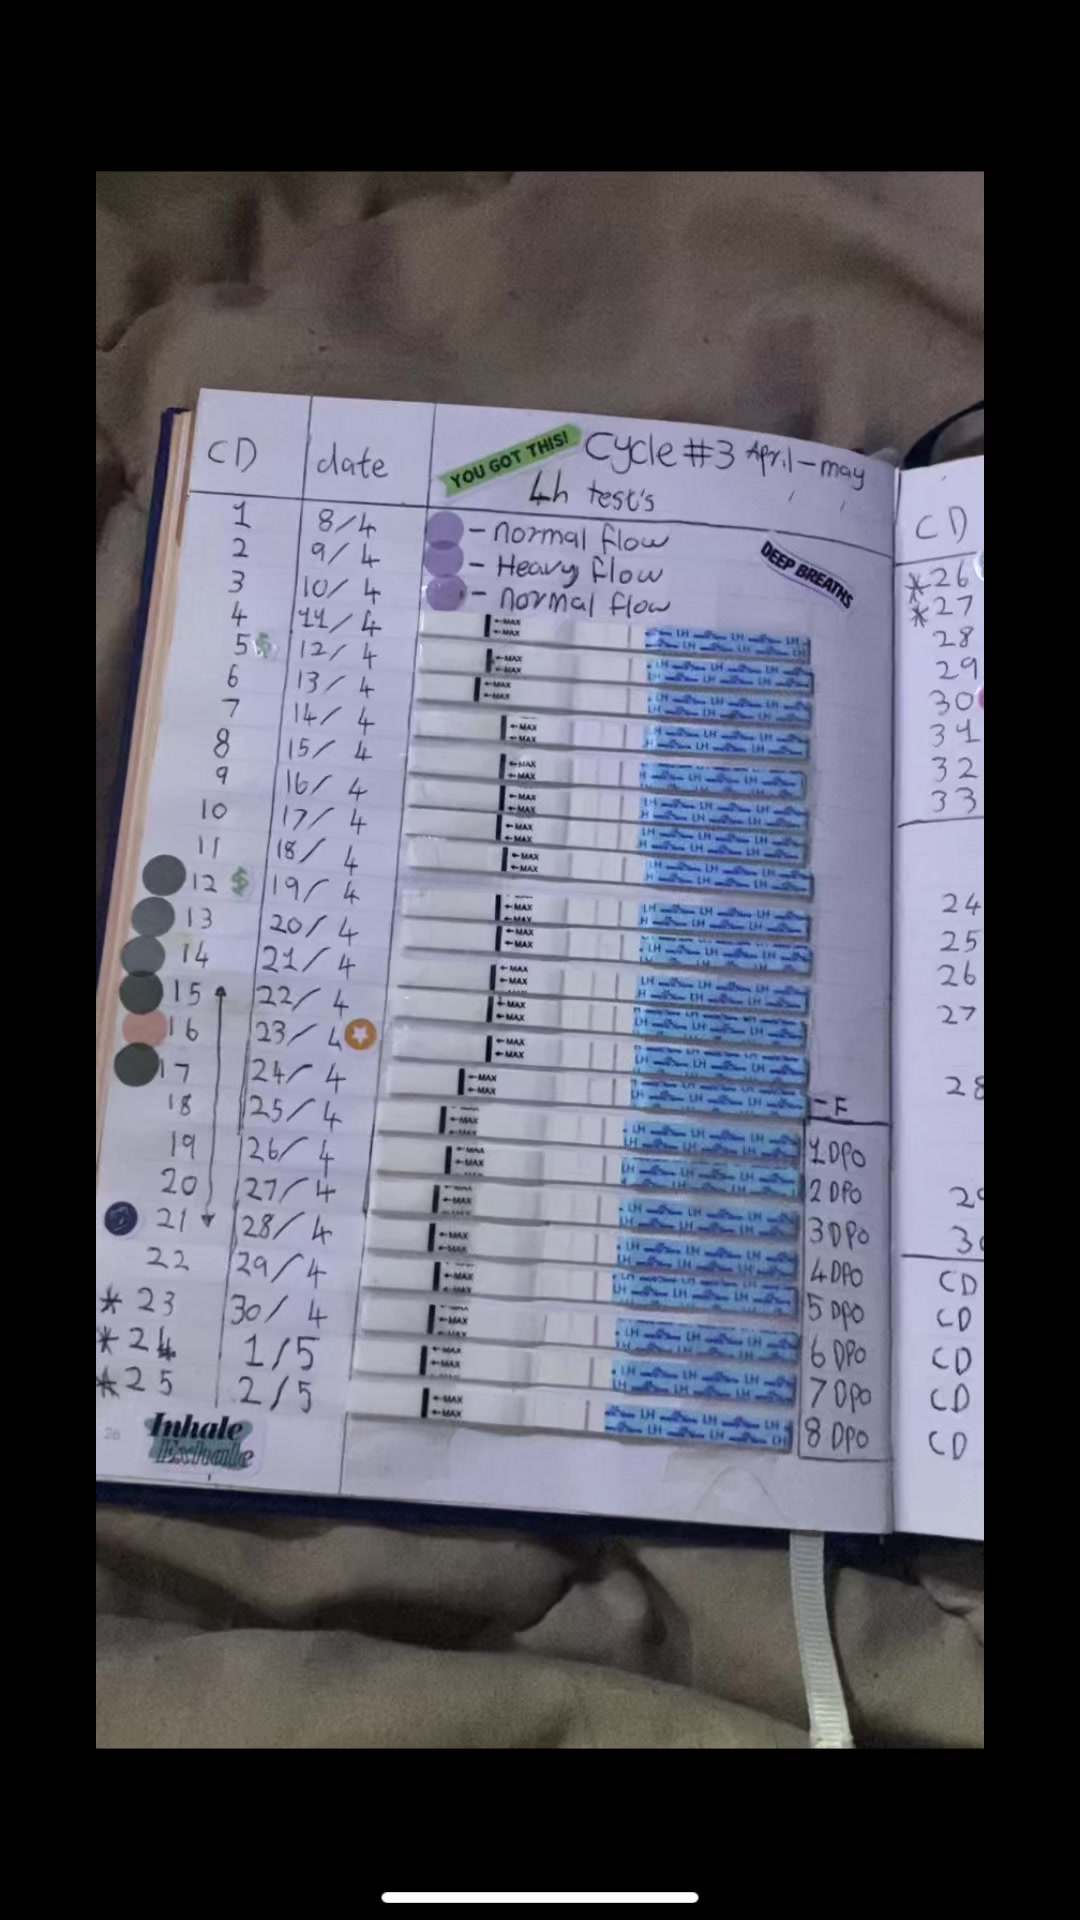 CD date YOU GOT THIS! Cycle #3 April-may
4h test's
1 8/4 - normal flow
2 9/4 - Heavy flow
3 10/4 - normal flow
DEEP BREATHS
4 11/4
5 $ 12/4
6 13/4
7 14/4
8 15/4
9 16/4
10 17/4
11 18/4
12 $ 19/4
13 20/4
14 21/4
15 22/4
16 23/4
17 24/4
18 25/4
19 26/4
20 27/4
21 28/4
22 29/4
* 23 30/4
* 24 1/5
* 25 2/5
Inhale
Exhale
26
←MAX
←MAX
LH LH LH LH
LH LH LH LH
- F
1 DPO
2 DPO
3 DPO
4 DPO
5 DPO
6 DPO
7 DPO
8 DPO
CD
*26
*27
28
29
30
31
32
33
24
25
26
27
28
29
30
CD
CD
CD
CD
CD